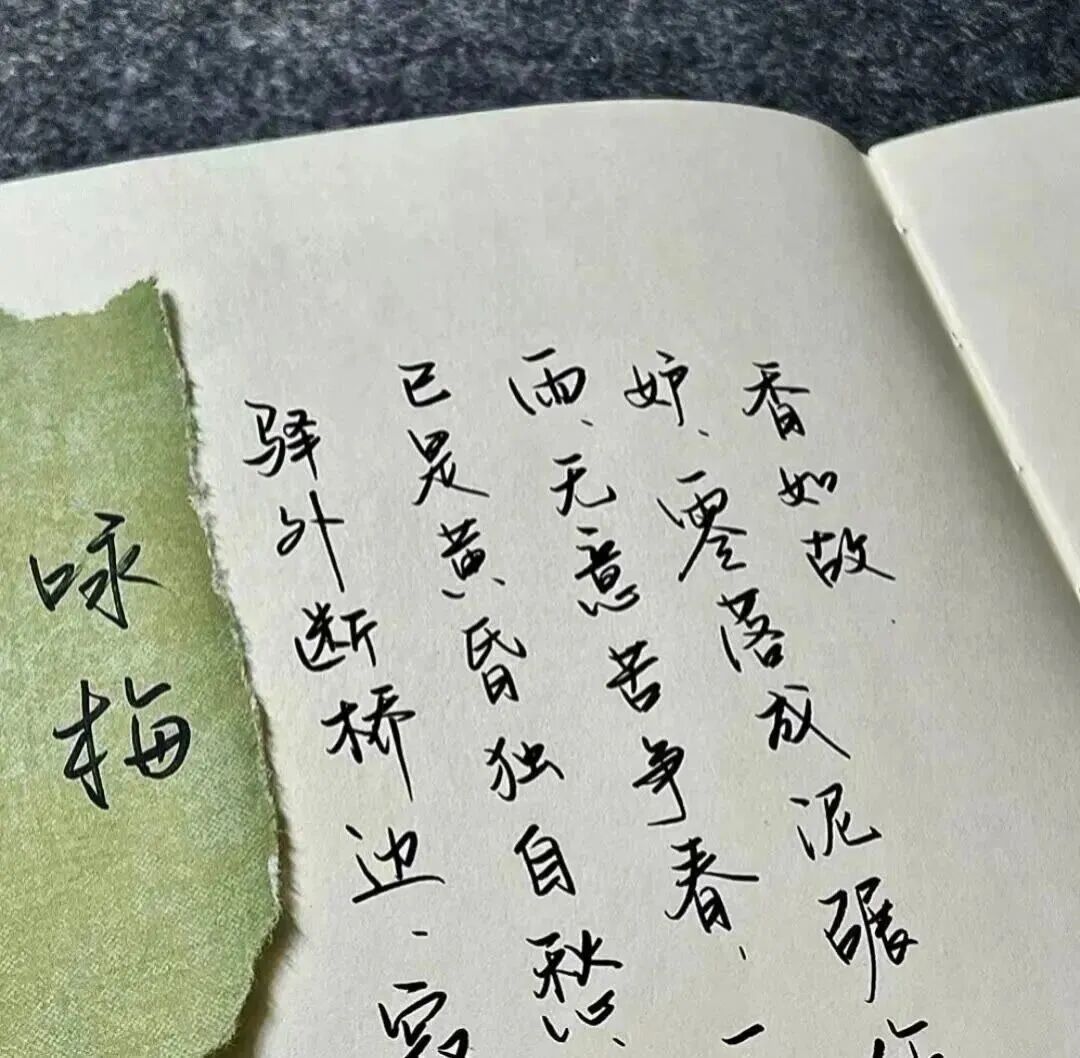 咏梅
驿外断桥边、寂
已是黄昏独自愁、
雨、无意苦争春、一
妒、零落成泥碾作
香如故